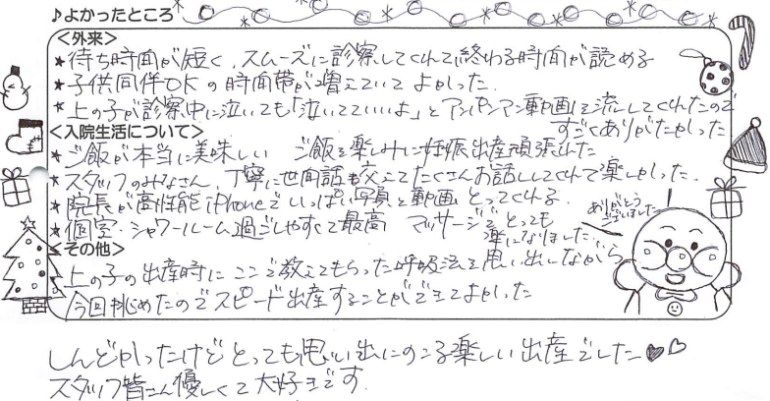 ♪よかったところ
<外来>
★待ち時間が短く、スムーズに診察してくれて終わる時間が読める
★子供同伴OKの時間帯が増えていてよかった。
★上の子が診察中に泣いても「泣いてていいよ」とアンパンマン動画を流してくれたので
すごくありがたかった
<入院生活について>
★ご飯が本当に美味しい ご飯を楽しみに妊娠出産頑張れた
★スタッフのみなさん、丁寧に世間話も交えてたくさんお話ししてくれて楽しかった。
★院長が高性能iPhoneでいっぱい写真と動画とってくれる。
★個室・シャワールーム過ごしやすくて最高 マッサージでとっても
楽になりました…
ありがとう
ございました
<その他>
上の子の出産時にここで教えてもらった呼吸法を思い出しながら
今回挑めたのでスピード出産することができてよかった
しんどかったけどとっても思い出にのこる楽しい出産でした♥♡
スタッフ皆さん優しくて大好きです。